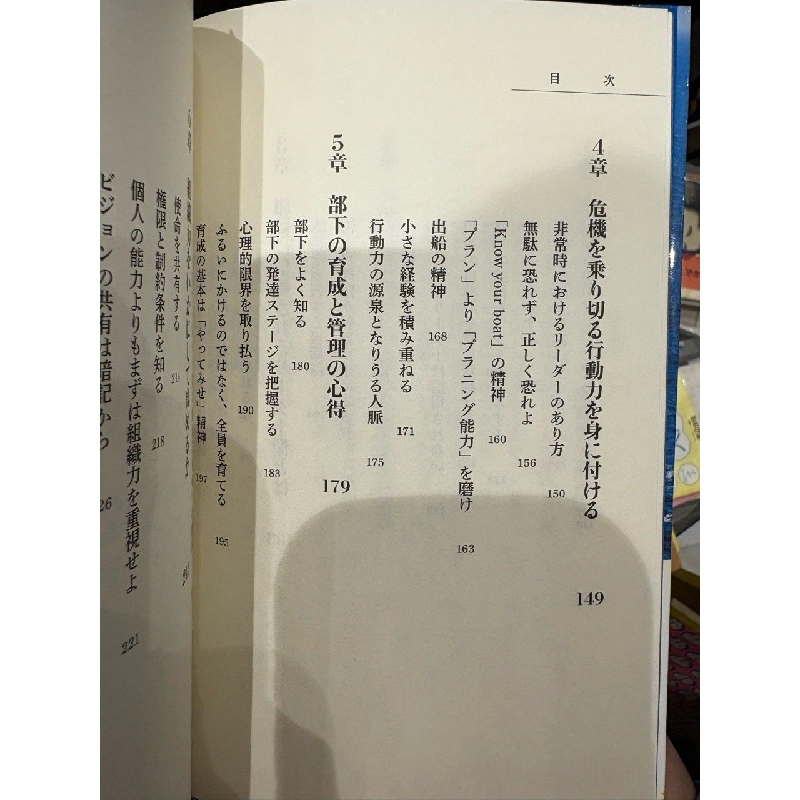 目次
4章 危機を乗り切る行動力を身に付ける 149
非常時におけるリーダーのあり方 150
無駄に恐れず、正しく恐れよ 156
「Know your boat」の精神 160
「プラン」より「プラニング能力」を磨け 163
出船の精神 168
小さな経験を積み重ねる 171
行動力の源泉となりうる人脈 175
5章 部下の育成と管理の心得 179
部下をよく知る 180
部下の発達ステージを把握する 183
心理的限界を取り払う 190
ふるいにかけるのではなく、全員を育てる 195
育成の基本は「やってみせ」精神 197
使命を共有する
権限と制約条件を知る 218
個人の能力よりもまずは組織力を重視せよ 221
ビジョンの共有は暗記から